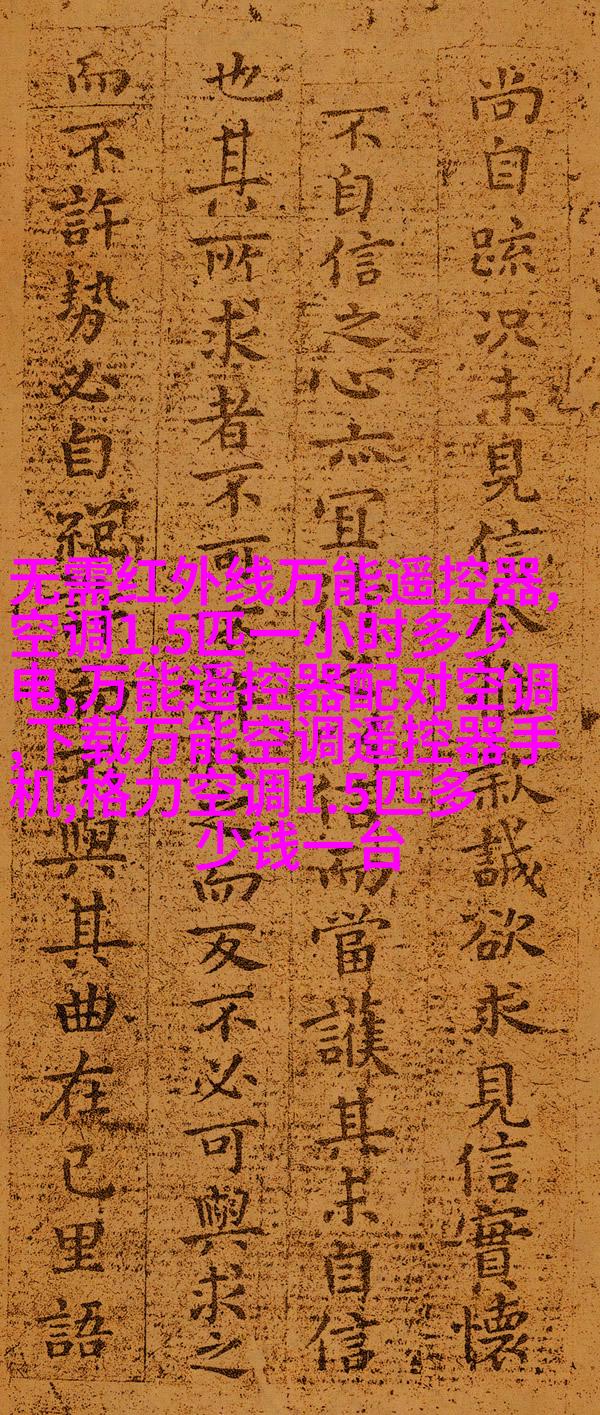 尚自疏况未見信誠欲求見信實懷
不自信之心亦宜而當護其未自信
也其所求者不可而反不必可與求之
而不許勢必自絕與其曲在己里語
无需红外线万能遥控器,
空调1.5匹一小时多少
电,万能遥控器配对空调
,下载万能空调遥控器手
机,格力空调1.5匹多
少钱一台